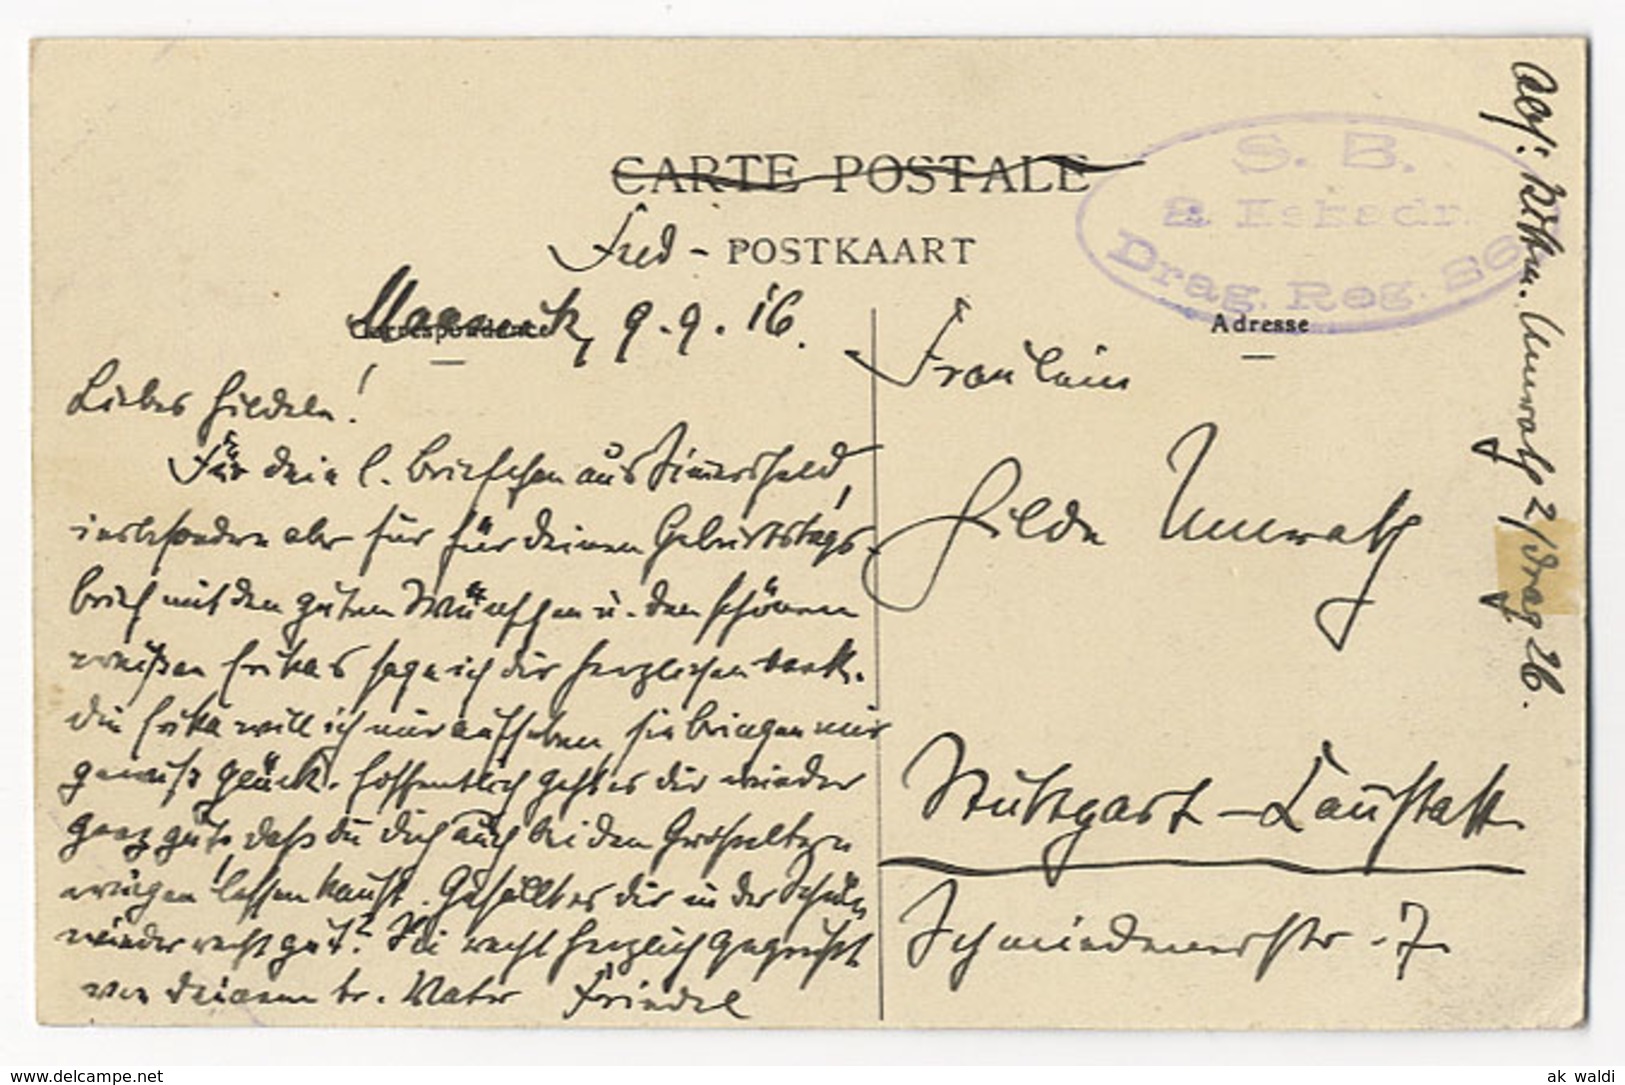 CARTE POSTALE
Feld - POSTKAART
S. B.
2. Eskadr.
Drag. Reg. 26
Correspondence
9.9.16.
Adresse
Liebes Hildele!
Für dein l. Briefchen aus Simmersfeld,
insbesondere aber für für deinen Geburtstags-
brief mit den guten Wünschen u. den schönen
weißen Erikas sage ich dir herzlichen Dank.
Die Erika will ich mir aufheben, sie bringen mir
gewiß Glück. Hoffentlich geht es dir wieder
ganz gut, daß du dich auch bei den Großeltern
wiegen lassen kannst. Gefällt es dir in der Schule
wieder recht gut? Sei recht herzlich gegrüßt
von deinem tr. Vater Friedel
Fräulein
Hilde Unrath
Stuttgart-Cannstatt
Schmidenerstr. 7.
Abs: Rittm. 2/Drag 26.
www.delcampe.net
ak waldi